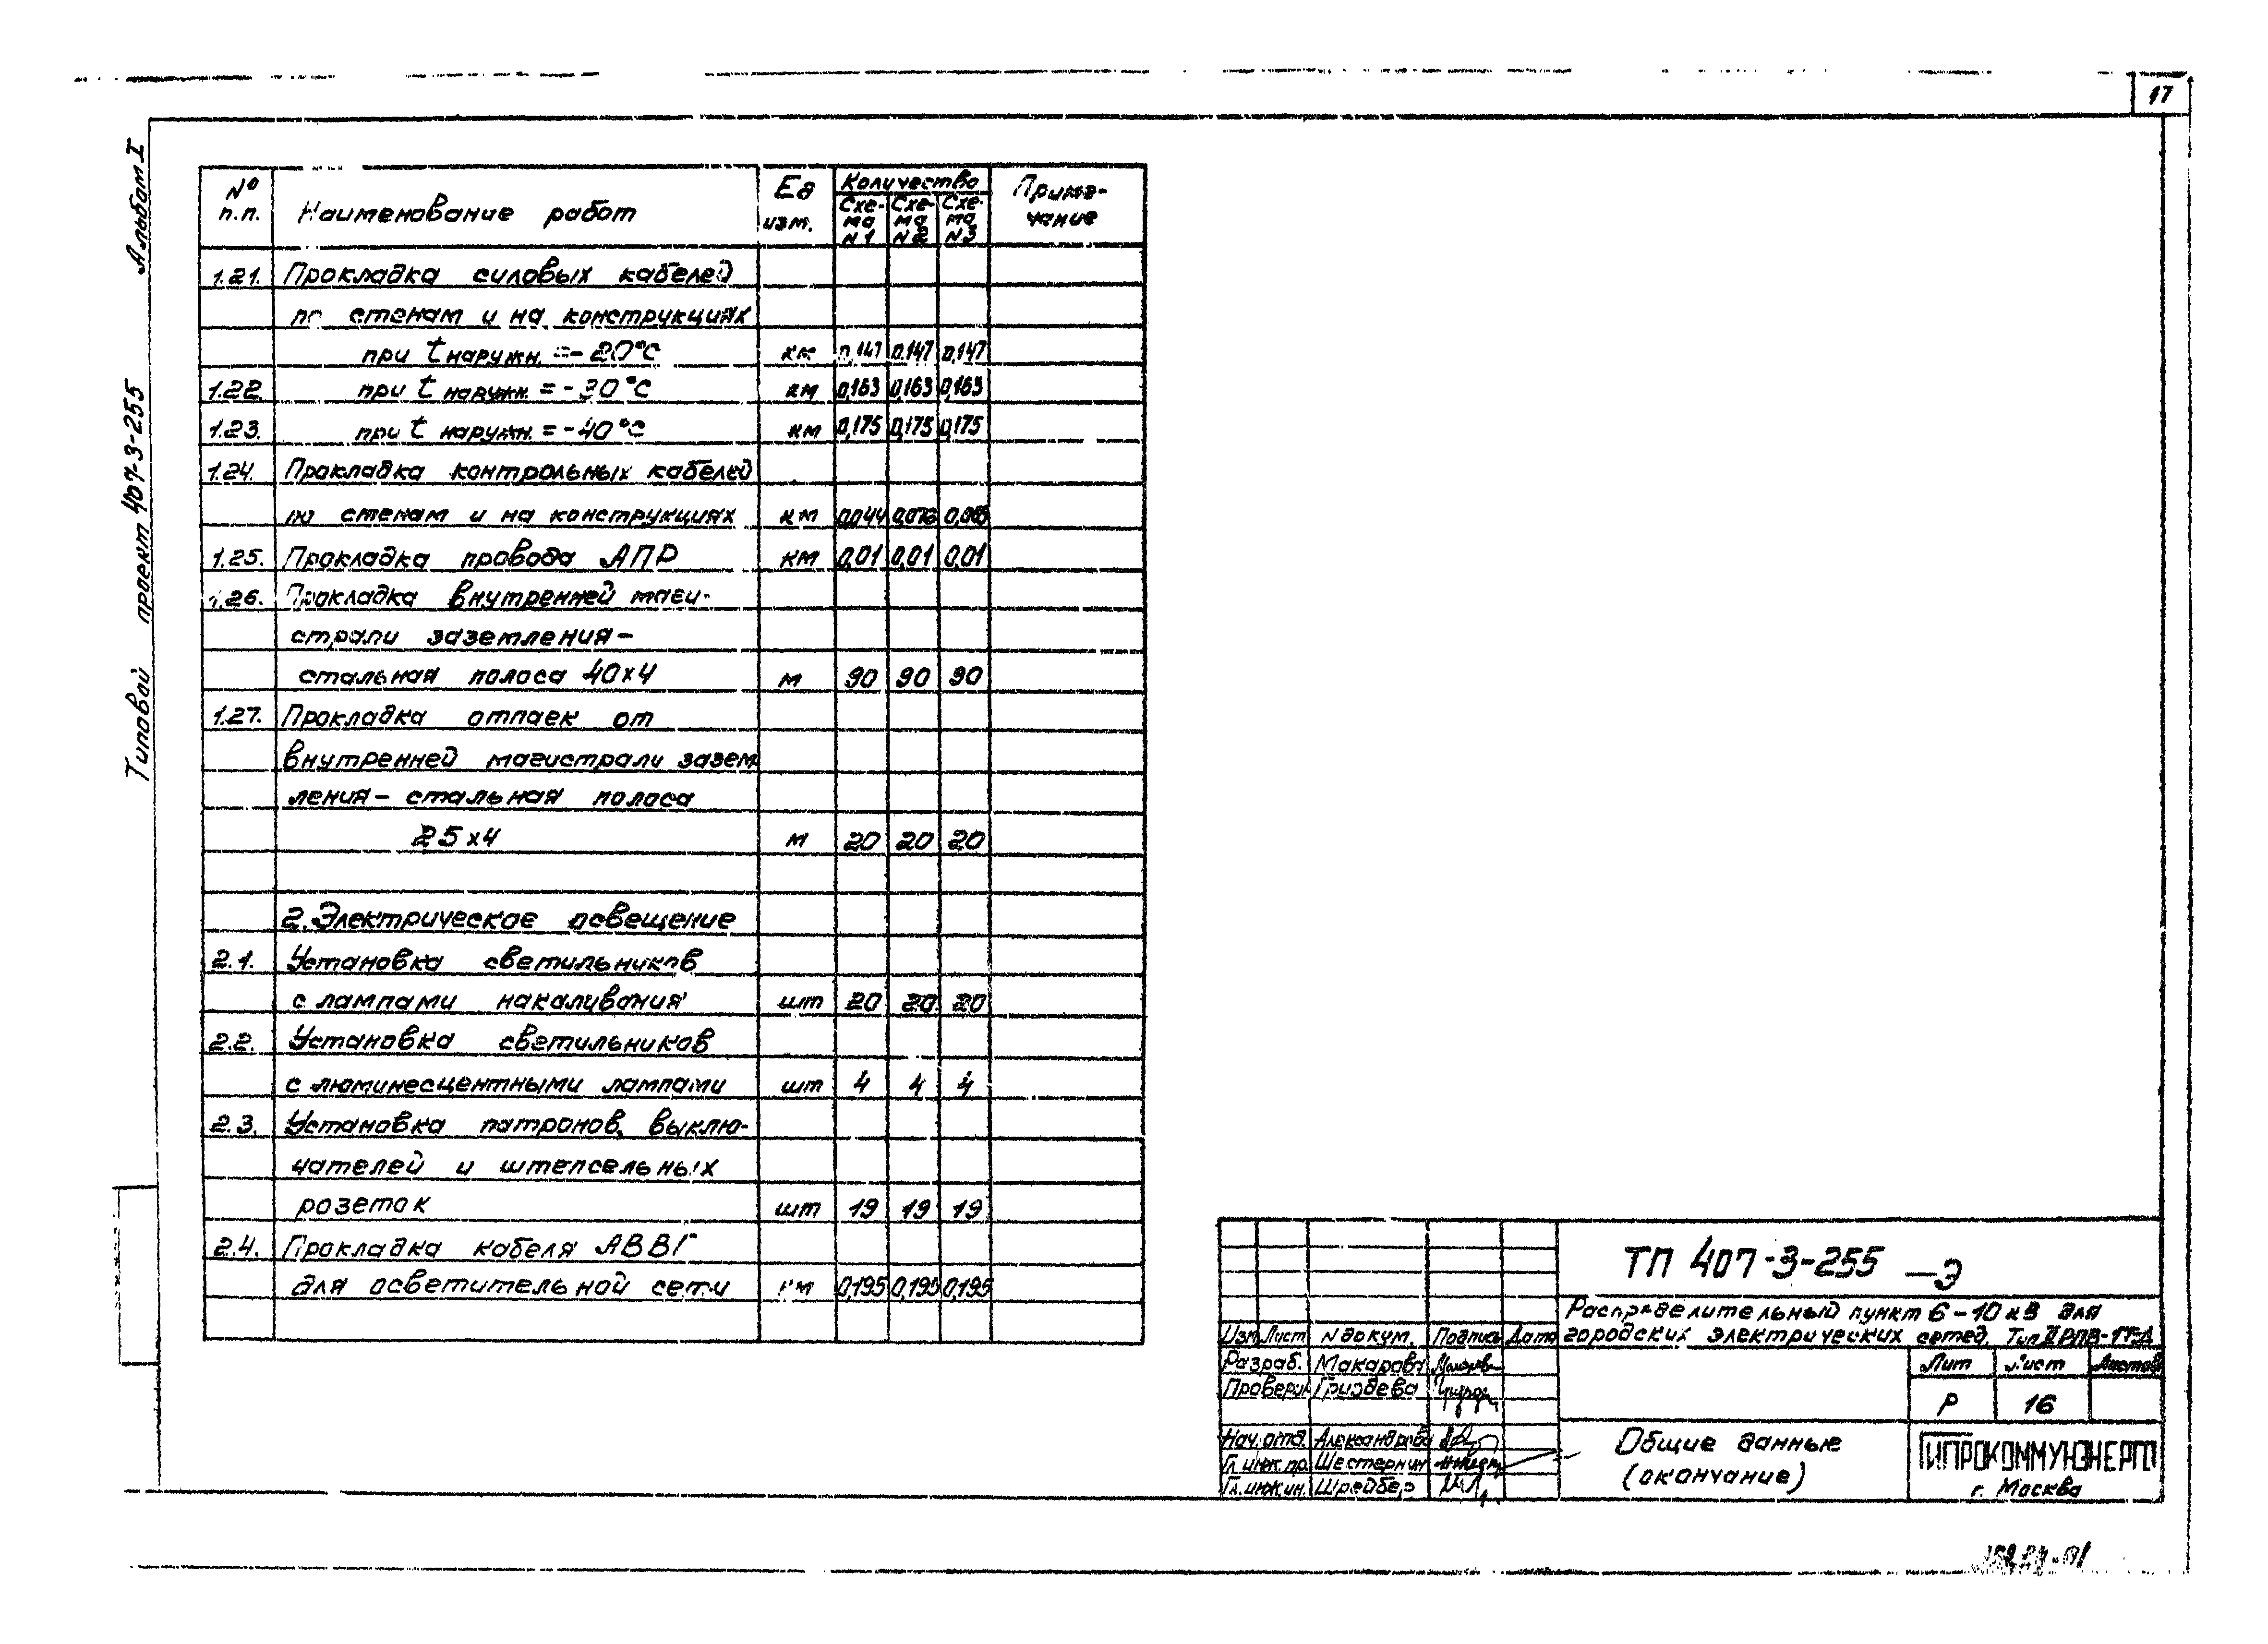 17
Альбом I
Типовой проект 407-3-255
№ п.п. Наименование работ Ед изм. Количество Примечание
Схема N1 Схема N2 Схема N3
1.21. Прокладка силовых кабелей
по стенам и на конструкциях
при t наружн. = -20°С км 0,147 0,147 0,147
1.22. при t наружн. = -30°С км 0,163 0,163 0,163
1.23. при t наружн. = -40°С км 0,175 0,175 0,175
1.24. Прокладка контрольных кабелей
по стенам и на конструкциях км 0,044 0,076
1.25. Прокладка провода АПР км 0,01 0,01 0,01
1.26. Прокладка внутренней маги-
страли заземления-
стальная полоса 40х4 м 90 90 90
1.27. Прокладка отпаек от
внутренней магистрали зазем
ления- стальная полоса
25х4 м 20 20 20
2. Электрическое освещение
2.1. Установка светильников
с лампами накаливания шт 20 20 20
2.2. Установка светильников
с люминесцентными лампами шт 4 4 4
2.3. Установка патронов, выклю-
чателей и штепсельных
розеток шт 19 19 19
2.4. Прокладка кабеля АВВГ
для осветительной сети км 0,195 0,195 0,195
ТП 407-3-255 -Э
Распределительный пункт 6-10 кВ для
городских электрических сетей. Тип II РПВ-1Т-Д
Изм Лист N докум. Подпись Дата
Разраб. Макарова
Проверил Гриздева
Нач. отд. Александрова
Гл. инж. пр. Шестернин
Гл. инжин. Шрейбер
Лит Лист Листов
Р 16
Общие данные
(окончание)
ГИПРОКОММУНЭНЕРГО
г. Москва